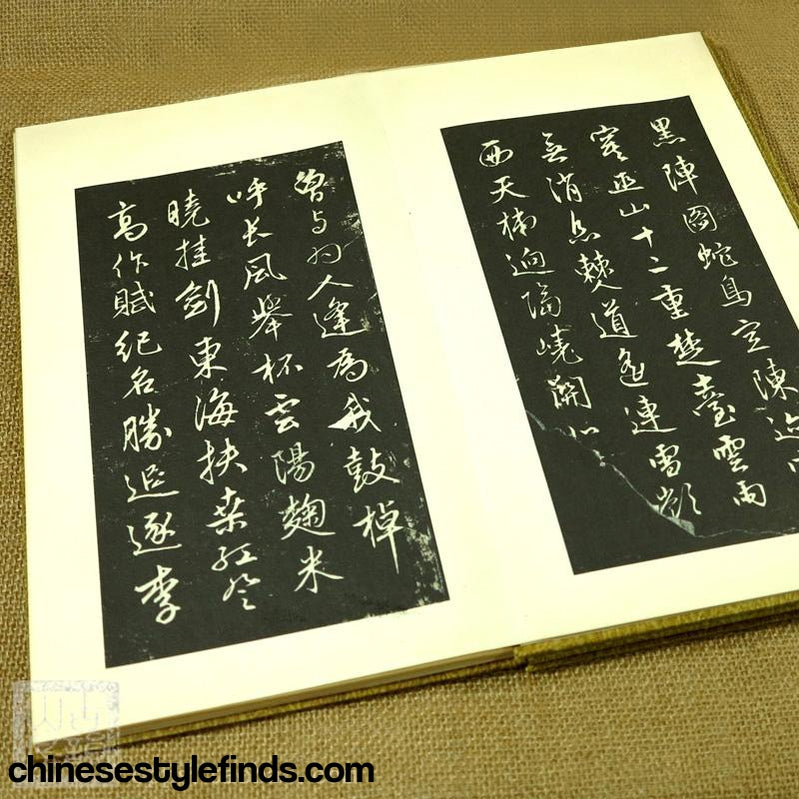 黑陣圖蛇鳥空陳迹
巫山十二重楚臺雲雨
無消息僰道遙連雪嶺
西天梯迥隔嶢關北
曾与人逢為我鼓棹
呼長風舉杯雲陽麹米
曉挂劍東海扶桑紅
高作賦紀名勝追逐李
chinesestylefinds.com